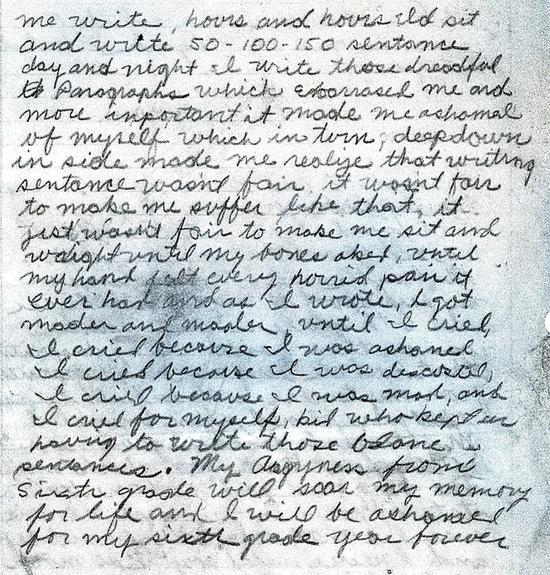 me write, hours and hours I'ld sit
and write 50-100-150 sentance
day and night I write those dreadful
Paragraphs which embarrased me and
more inportant it made me ashamed
of myself which in turn, deep down
in side made me realize that writing
sentance wasn't fair it wasnt fair
to make me suffer like that, it
just wasn't fair to make me sit and
waight until my bones aked, until
my hand felt every horred pain it
ever had and as I wrote, I got
mader and mader, until I cried,
I cried because I was ashamed
I cried because I was discusted,
I cried because I was mad, and
I cried for myself, kid who kept on
having to write those
sentances. My Angryness from
Sixth grade will scar my memory
for life and I will be ashamed
for my sixth grade year forever